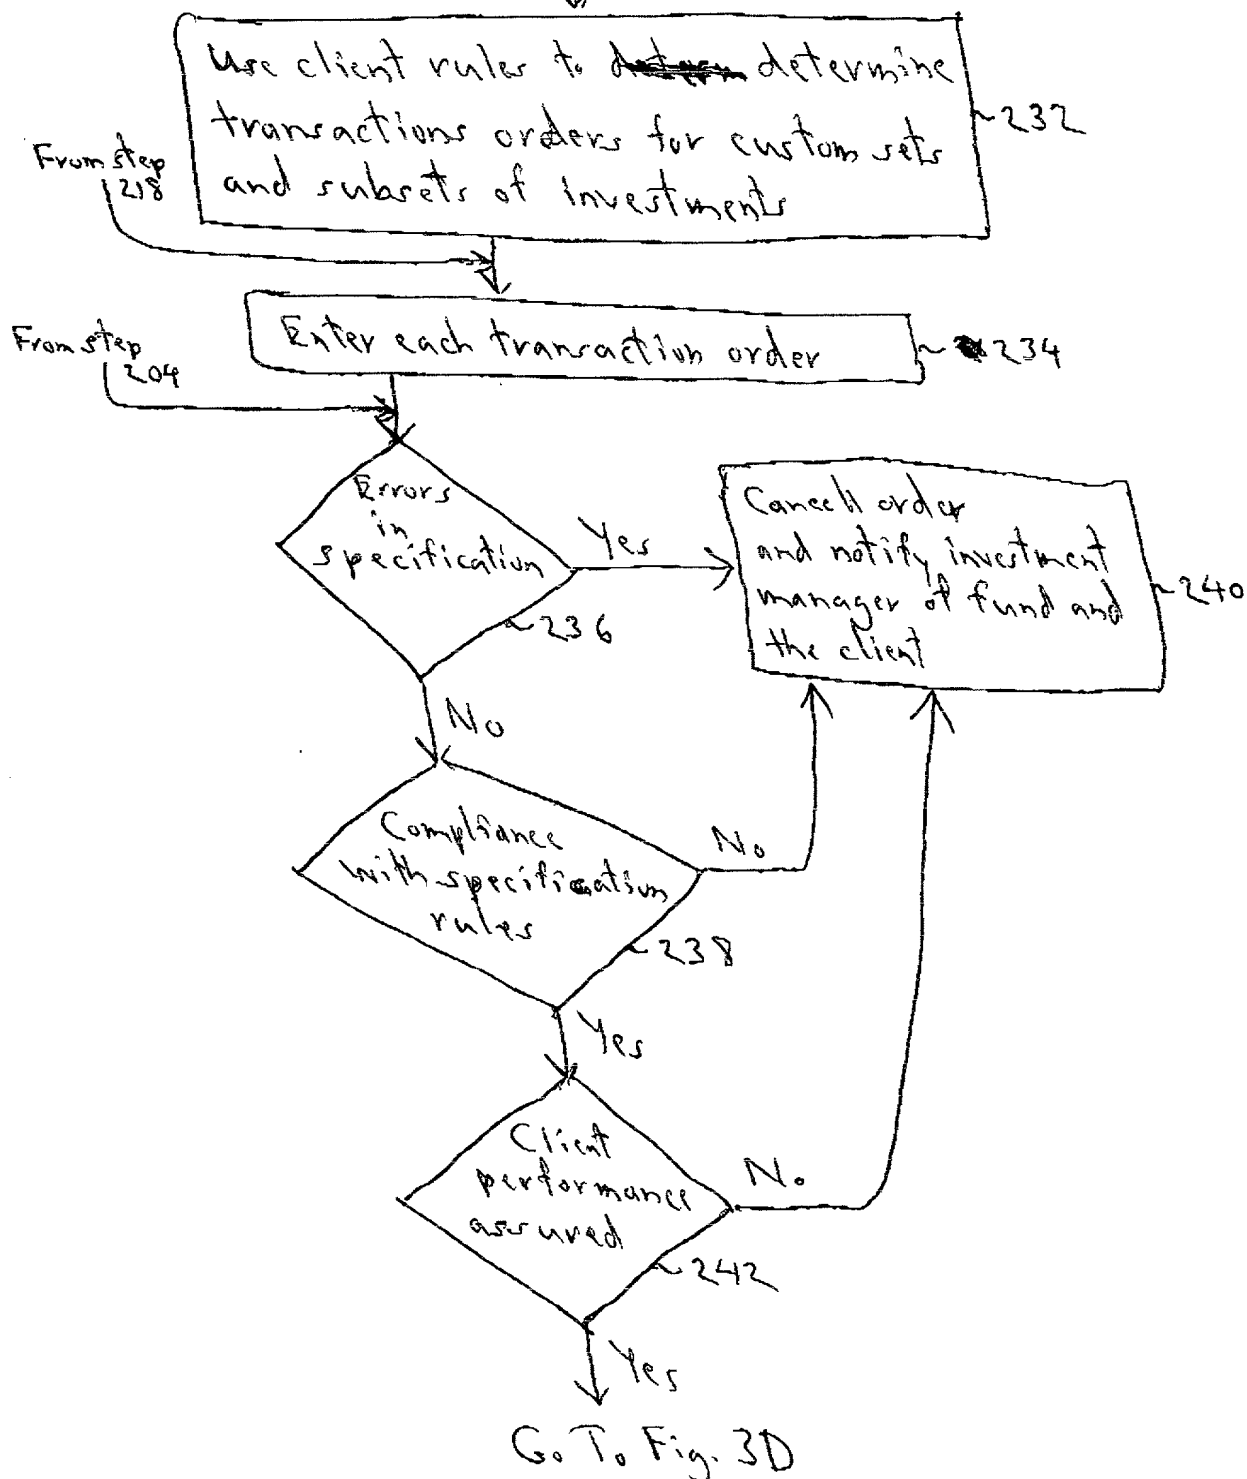 Use client rules to determine
transactions orders for custom sets
and subsets of investments
~232
From step
218
Enter each transaction order
~234
From step
204
Errors
in
specification
Yes
~236
Cancell order
and notify investment
manager of fund and
the client
~240
No
Compliance
with specification
rules
No
~238
Yes
Client
performance
assured
No
~242
Yes
Go To Fig. 3D